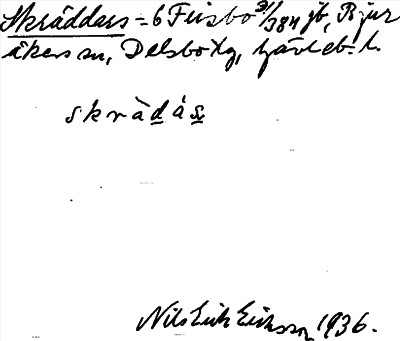 Skrädders = 6 Fiisbo 31/384 jb, Bjur
åkers sn, Delsbo tg, Gävleb. l.
skràdás
Nils Erik Eriksson 1936.